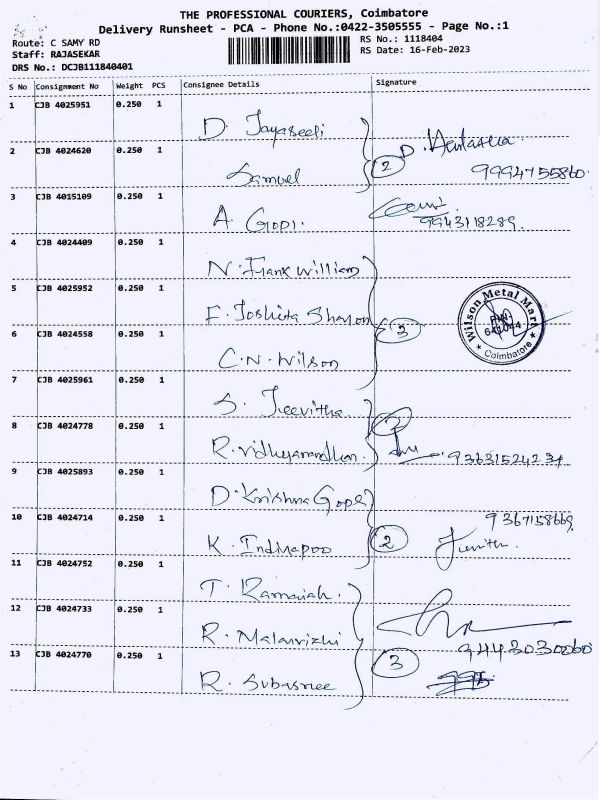 THE PROFESSIONAL COURIERS, Coimbatore
Delivery Runsheet - PCA - Phone No.:0422-3505555 - Page No.:1
Route: C SAMY RD
RS No.: 1118404
Staff: RAJASEKAR
RS Date: 16-Feb-2023
DRS No.: DCJB111840401
S No Consignment No Weight PCS Consignee Details Signature
1 CJB 4025951 0.250 1 D. Jayaseeli
2 CJB 4024620 0.250 1 Samuel 2 9994755860.
3 CJB 4015109 0.250 1 A. Gopi. 9943118289.
4 CJB 4024409 0.250 1 N. Frank William
5 CJB 4025952 0.250 1 Sharon
6 CJB 4024558 0.250 1 C.N. Wilson 3
Wilson Metal Mart
Coimbatore
7 CJB 4025961 0.250 1 S. Jeevitha
8 CJB 4024778 0.250 1 R. 2
9 CJB 4025893 0.250 1 D. Krishna Gopal
10 CJB 4024714 0.250 1 K. 2 9367158669.
11 CJB 4024752 0.250 1 T. Ramaiah.
12 CJB 4024733 0.250 1 R. Malarvizhi 9443030060
13 CJB 4024770 0.250 1 R. Subasree 3